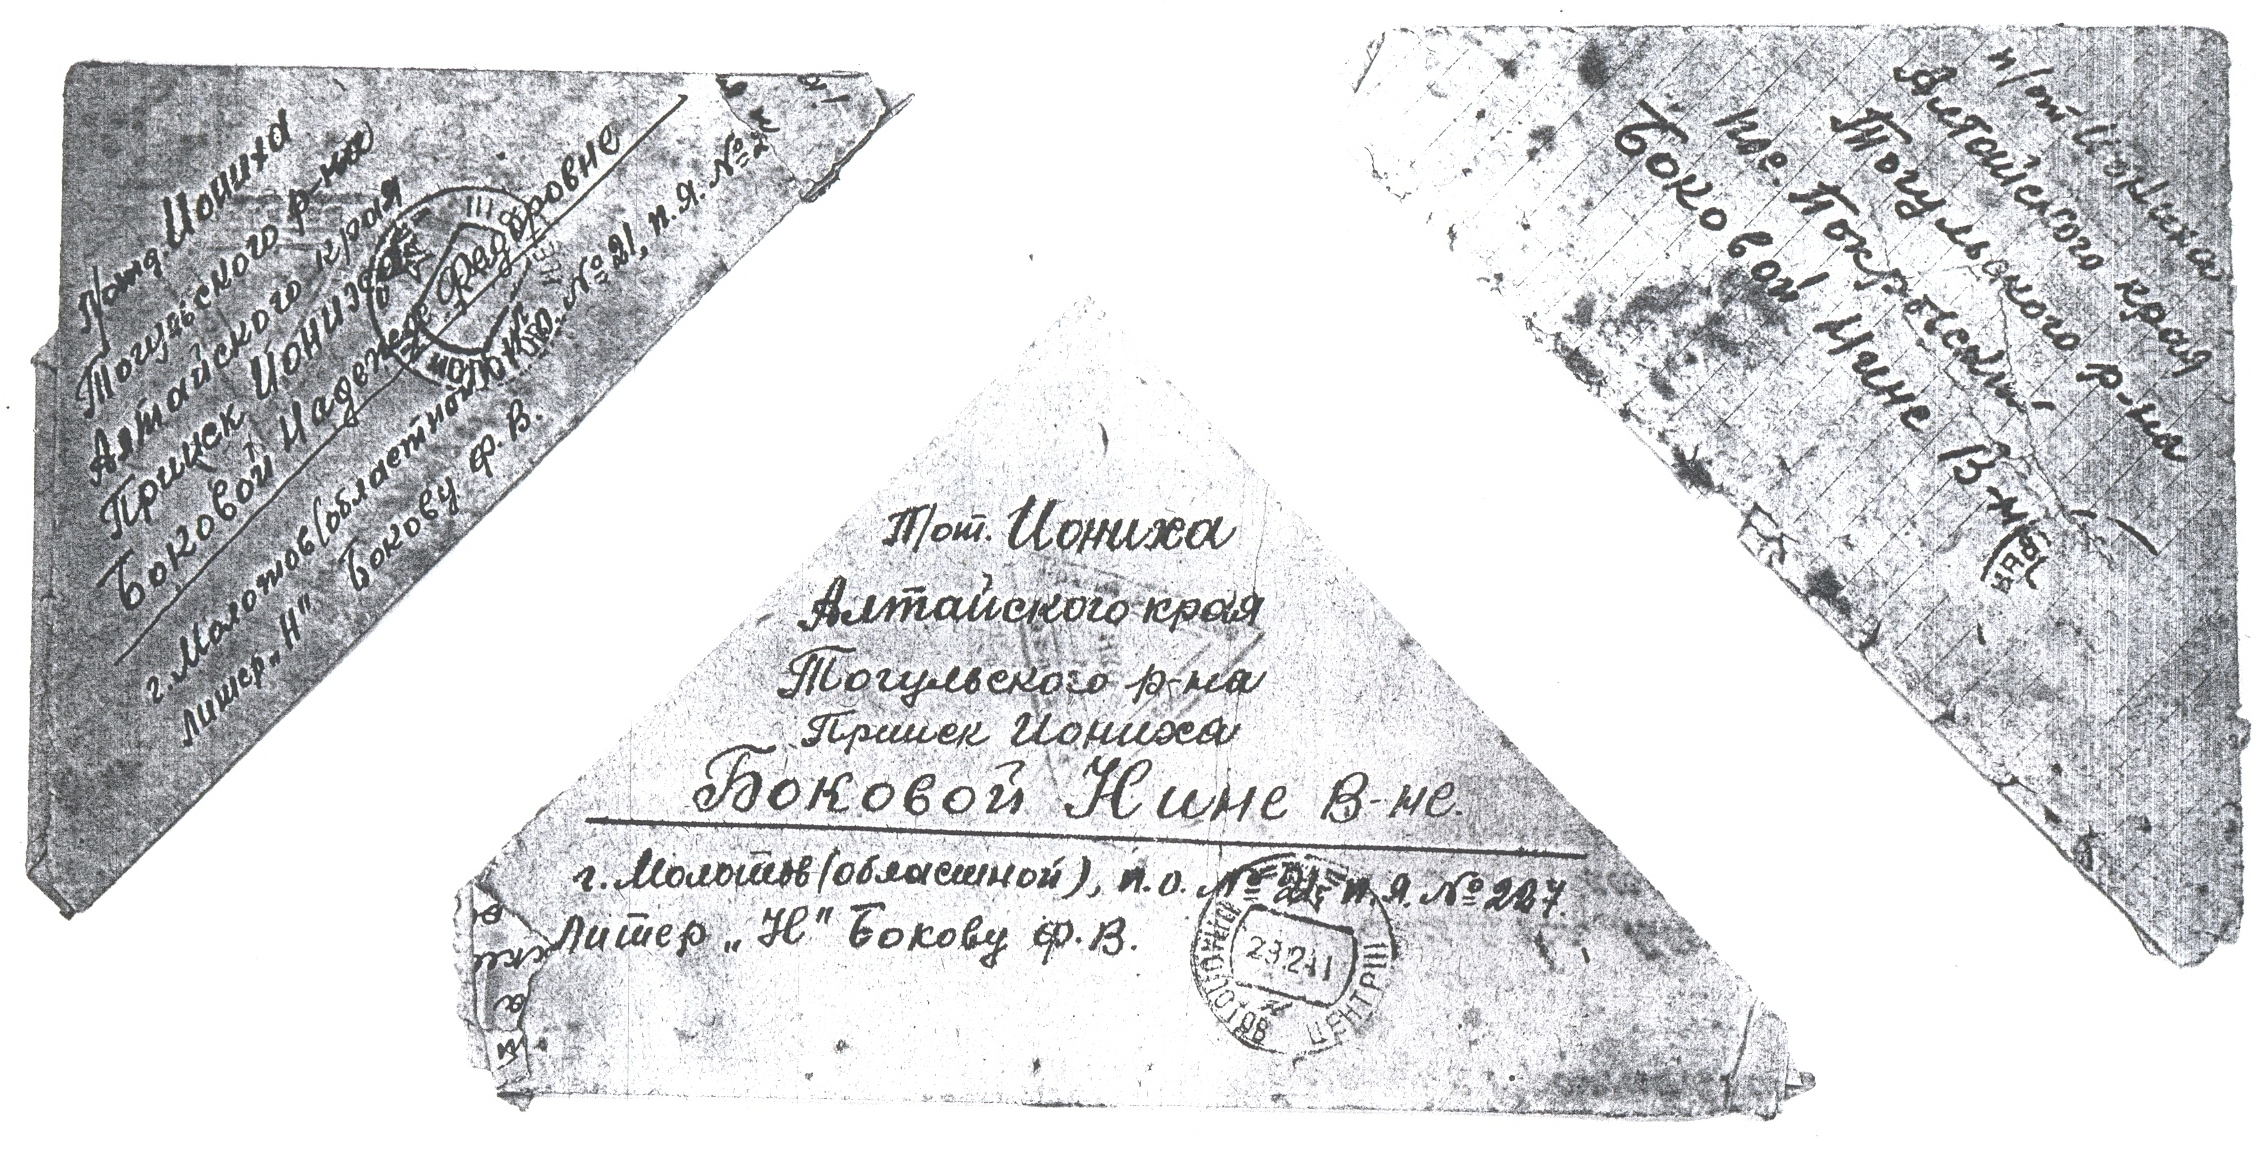 п/отд. Иониха
Тогульского р-на
Алтайского края
Прииск Иониха
Боковой Надежде Федоровне
г. Молотов (областной), п.о. № 21, п.я. № 2
Литер „Н" Бокову Ф. В.
П/от. Иониха
Алтайского края
Тогульского р-на
Прииск Иониха
Боковой Нине В-не.
г. Молотов (областной), п.о. № 21, п.я. № 227.
Литер „Н" Бокову Ф. В.
ЦЕНТР
п/от Иониха
Алтайского края
Тогульского р-на
пос. Покрысам
Боковой Нине В-не